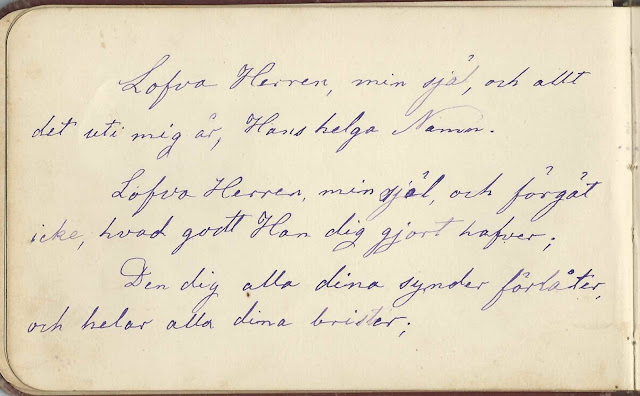 Lofva Herren, min själ, och allt
det uti mig är, Hans helga Namn.
Lofva Herren, min själ, och förgät
icke, hvad godt Han dig gjort hafver;
Den dig alla dina synder förlåter,
och helar alla dina brister;